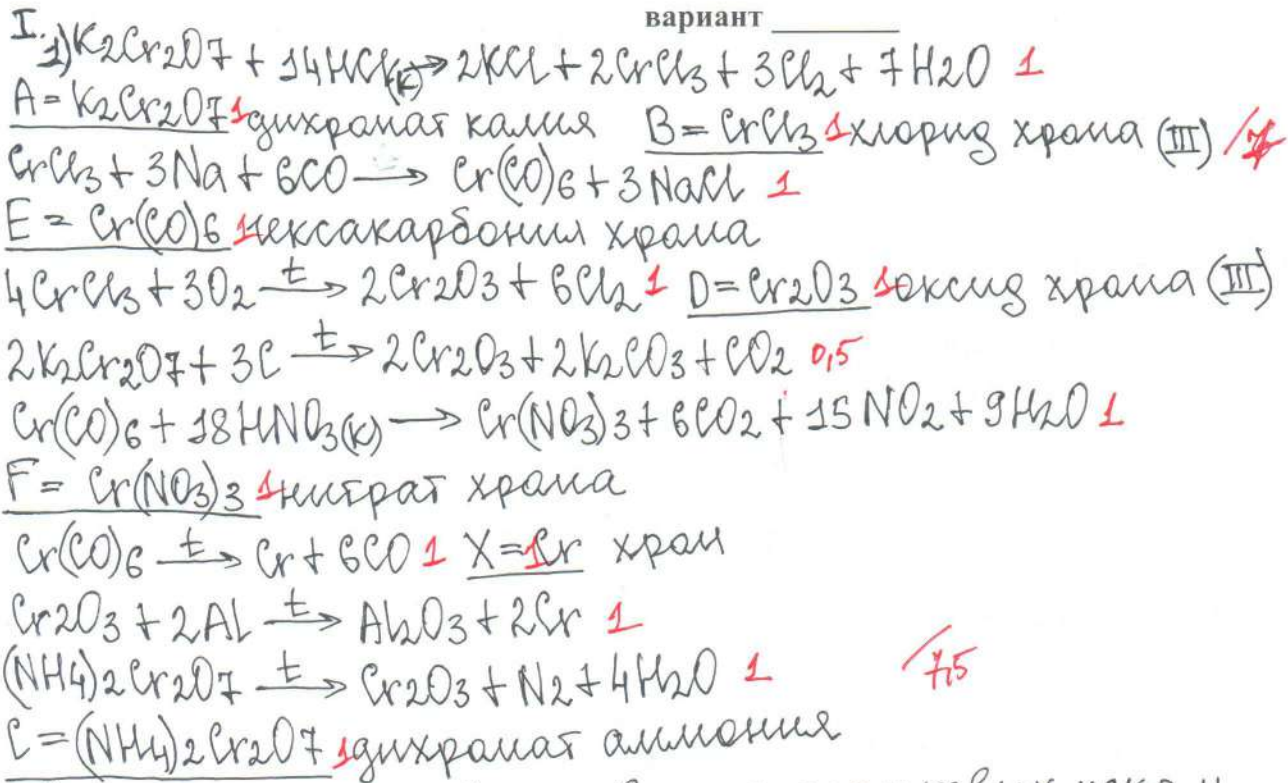 вариант
I.
1) K2Cr2O7 + 14HCl(к) → 2KCl + 2CrCl3 + 3Cl2 + 7H2O 1
A = K2Cr2O7 1 дихромат калия B = CrCl3 1 хлорид хрома (III) /7
CrCl3 + 3Na + 6CO → Cr(CO)6 + 3NaCl 1
E = Cr(CO)6 1 гексакарбонил хрома
4CrCl3 + 3O2 t→ 2Cr2O3 + 6Cl2 1 D = Cr2O3 1 оксид хрома (III)
2K2Cr2O7 + 3C t→ 2Cr2O3 + 2K2CO3 + CO2 0,5
Cr(CO)6 + 18HNO3(к) → Cr(NO3)3 + 6CO2 + 15NO2 + 9H2O 1
F = Cr(NO3)3 1 нитрат хрома
Cr(CO)6 t→ Cr + 6CO 1 X = 1 Cr хром
Cr2O3 + 2Al t→ Al2O3 + 2Cr 1
(NH4)2Cr2O7 t→ Cr2O3 + N2 + 4H2O 1 /7,5
C = (NH4)2Cr2O7 1 дихромат аммония